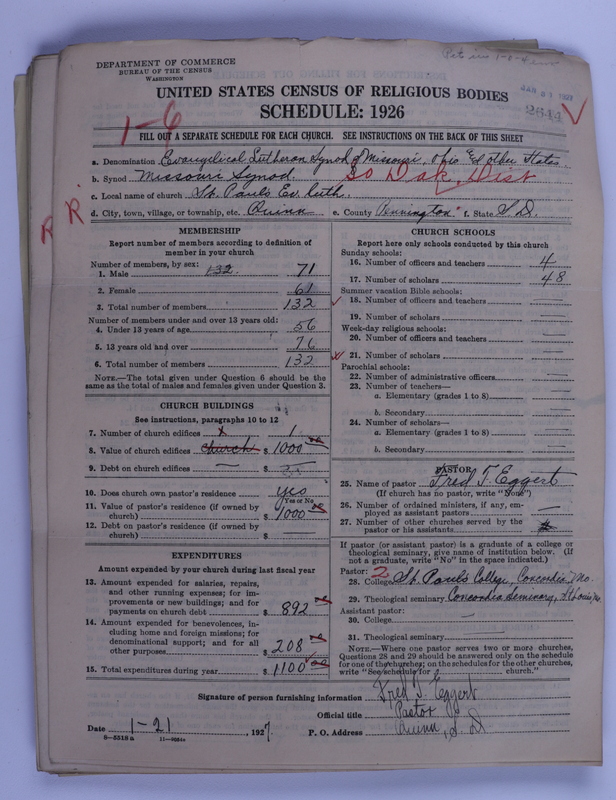 DEPARTMENT OF COMMERCE
BUREAU OF THE CENSUS
WASHINGTON
UNITED STATES CENSUS OF RELIGIOUS BODIES
SCHEDULE: 1926
2644
1-6
FILL OUT A SEPARATE SCHEDULE FOR EACH CHURCH. SEE INSTRUCTIONS ON THE BACK OF THIS SHEET
a. Denomination Evangelical Lutheran Synod of Missouri, Ohio & other States
b. Synod Missouri Synod. So Dak. Dist
c. Local name of church St. Pauls Ev. Luth.
d. City, town, village, or township, etc. Quinn e. County Pennington f. State S. D.
R R.
MEMBERSHIP
Report number of members according to definition of
member in your church
Number of members, by sex:
1. Male 132 71
2. Female 61
3. Total number of members 132
Number of members under and over 13 years old:
4. Under 13 years of age 56
5. 13 years old and over 76
6. Total number of members 132
NOTE.—The total given under Question 6 should be the
same as the total of males and females given under Question 3.
CHURCH BUILDINGS
See instructions, paragraphs 10 to 12
7. Number of church edifices 1
8. Value of church edifices church $ 1000 00
9. Debt on church edifices — $
10. Does church own pastor's residence yes
Yes or No
11. Value of pastor's residence (if owned by
church) $ 1000 00
12. Debt on pastor's residence (if owned by
church) $
EXPENDITURES
Amount expended by your church during last fiscal year
13. Amount expended for salaries, repairs,
and other running expenses; for im-
provements or new buildings; and for
payments on church debt $ 892
14. Amount expended for benevolences, in-
cluding home and foreign missions; for
denominational support; and for all
other purposes $ 208
15. Total expenditures during year $ 1100 00
CHURCH SCHOOLS
Report here only schools conducted by this church
Sunday schools:
16. Number of officers and teachers 4
17. Number of scholars 48
Summer vacation Bible schools:
18. Number of officers and teachers
19. Number of scholars
Week-day religious schools:
20. Number of officers and teachers
21. Number of scholars
Parochial schools:
22. Number of administrative officers
23. Number of teachers—
a. Elementary (grades 1 to 8)
b. Secondary
24. Number of scholars—
a. Elementary (grades 1 to 8)
b. Secondary
PASTOR
25. Name of pastor Fred T. Eggert
(If church has no pastor, write "None")
26. Number of ordained ministers, if any, em-
ployed as assistant pastors —
27. Number of other churches served by the
pastor or his assistants
If pastor (or assistant pastor) is a graduate of a college or
theological seminary, give name of institution below. (If
not a graduate, write "No" in the space indicated.)
Pastor: 2
28. College St. Pauls College, Concordia, Mo.
29. Theological seminary Concordia Seminary, St Louis, Mo.
Assistant pastor:
30. College —
31. Theological seminary —
NOTE.—Where one pastor serves two or more churches,
Questions 28 and 29 should be answered only on the schedule
for one of the churches; on the schedules for the other churches,
write "See schedule for church."
Signature of person furnishing information Fred T. Eggert
Official title Pastor
Date 1-21, 1927 P. O. Address Quinn, S. D
8—5518a